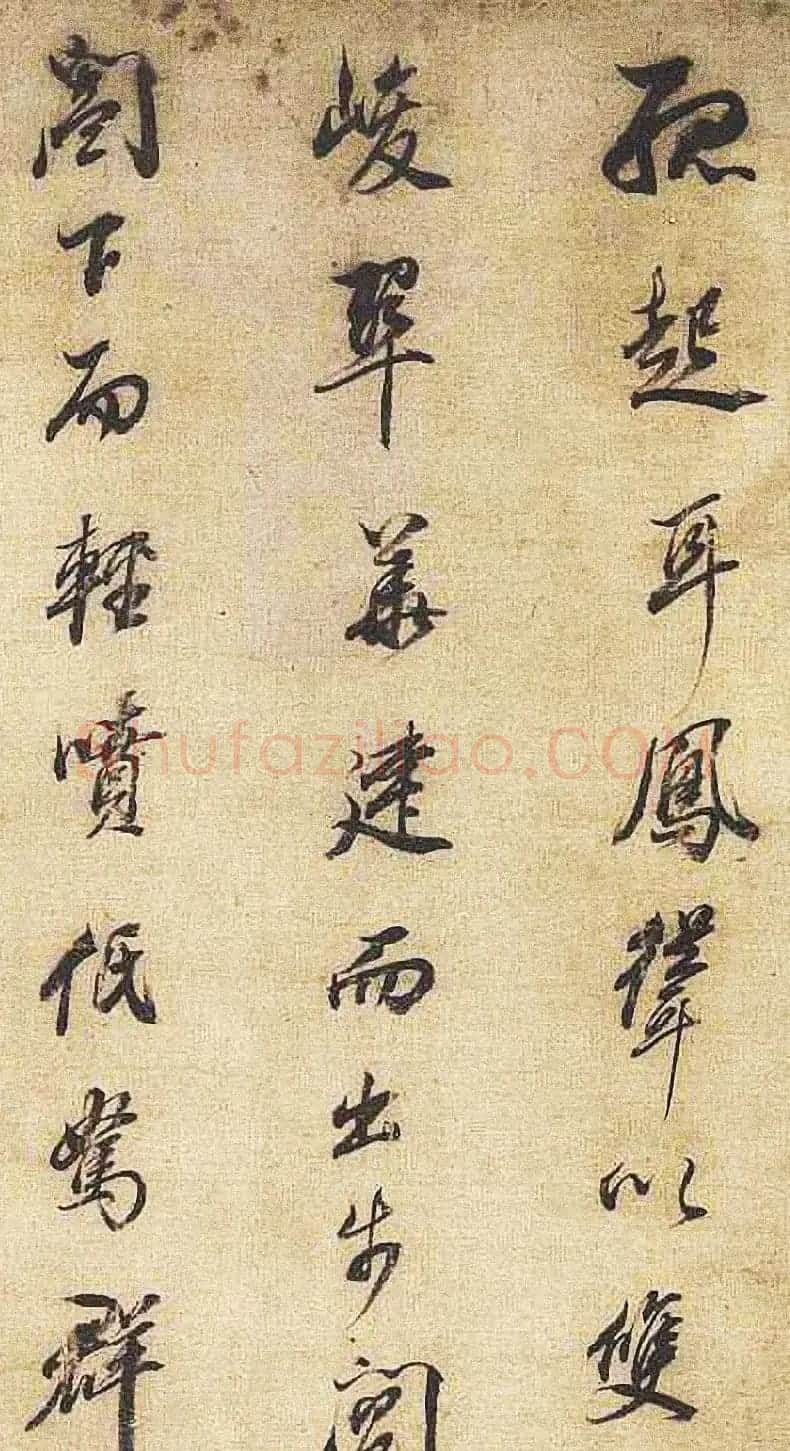 孤起耳鳳聳以雙
峻翠華建而出步閶
闔下而輕噴低駑群
shufaziliao.com